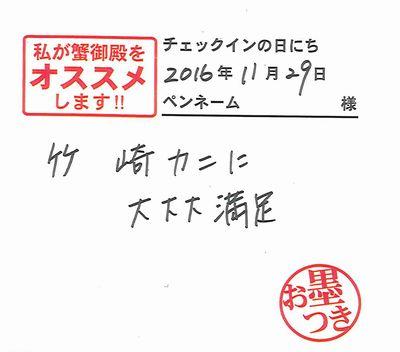 私が蟹御殿を
オススメ
します!!
チェックインの日にち
2016年11月29日
ペンネーム 様
竹崎カニに
大大大満足
お墨つき